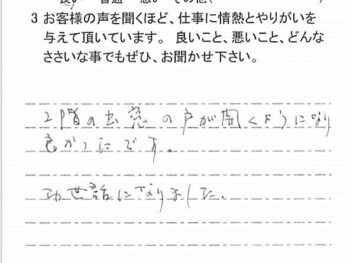 3 お客様の声を聞くほど、仕事に情熱とやりがいを
与えて頂いています。 良いこと、悪いこと、どんな
ささいな事でもぜひ、お聞かせ下さい。
2階の出窓の戸が開くようになり
良かったです。
お世話になりました。